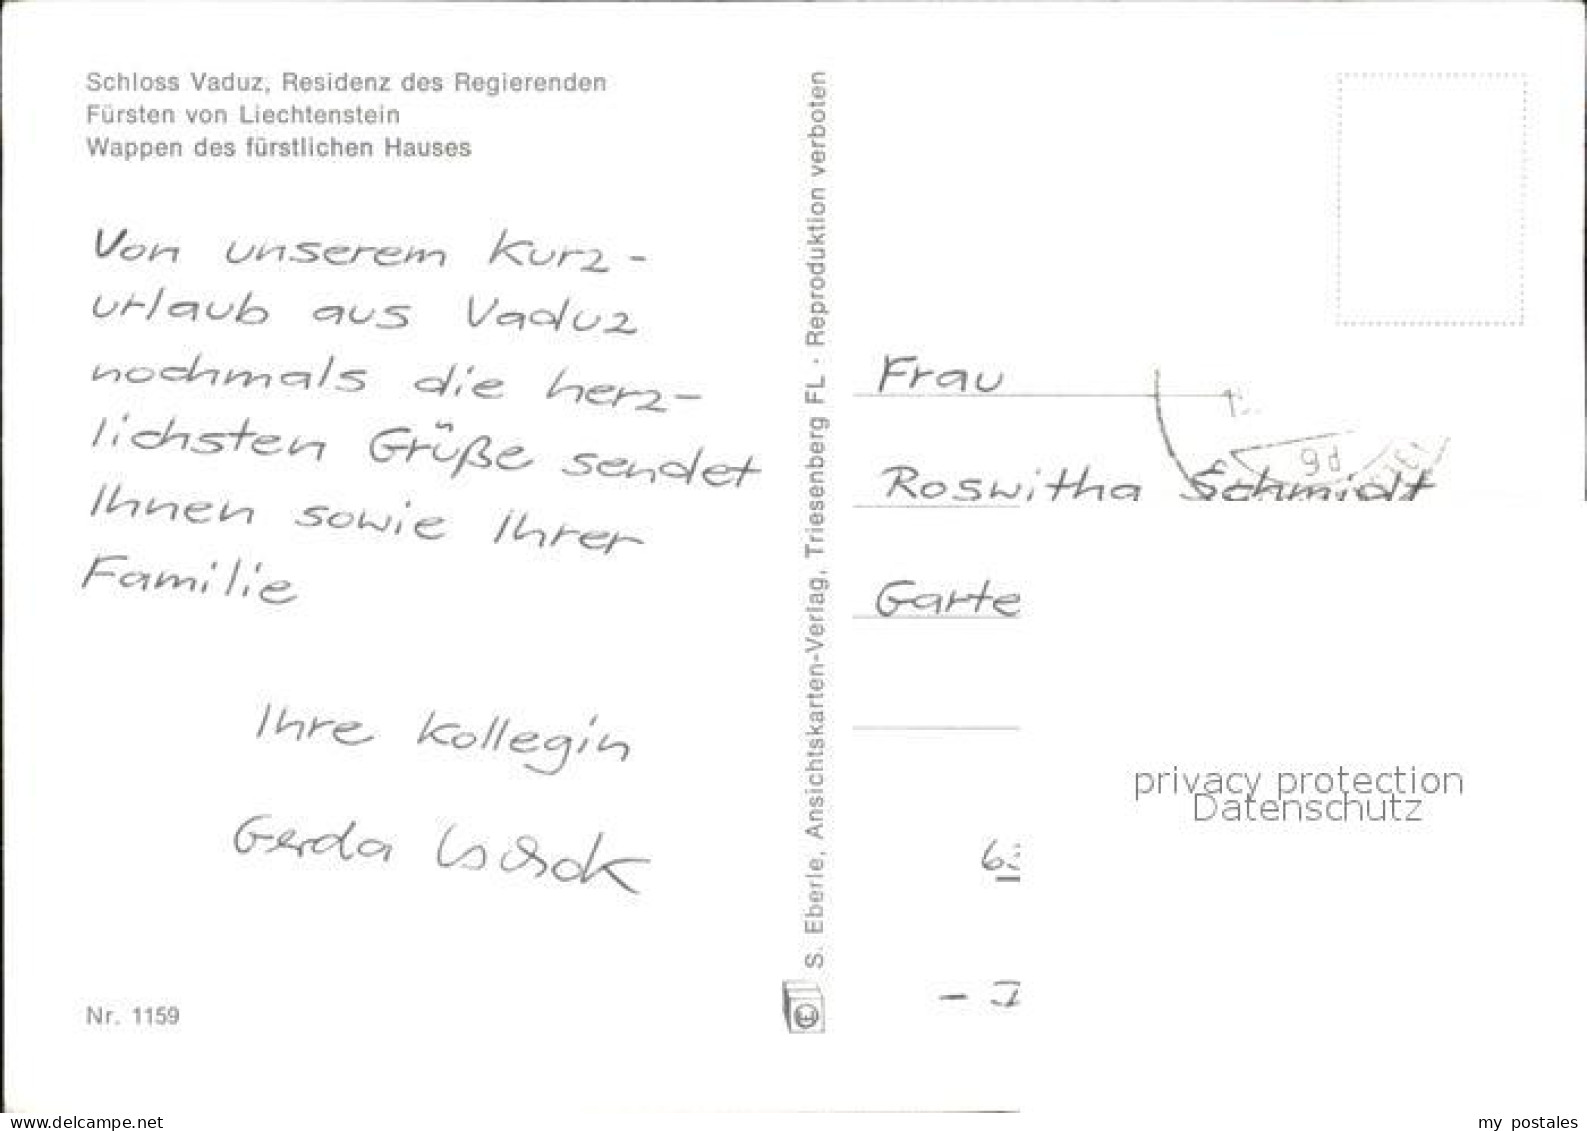 Schloss Vaduz, Residenz des Regierenden
Fürsten von Liechtenstein
Wappen des fürstlichen Hauses
Von unserem Kurz-
urlaub aus Vaduz
nochmals die herz-
lichsten Grüße sendet
Ihnen sowie Ihrer
Familie
Ihre Kollegin
Gerda
Nr. 1159
S. Eberle, Ansichtskarten-Verlag, Triesenberg FL · Reproduktion verboten
Frau
Roswitha Schmidt
Garte
privacy protection
Datenschutz
delcampe.net
my_postales